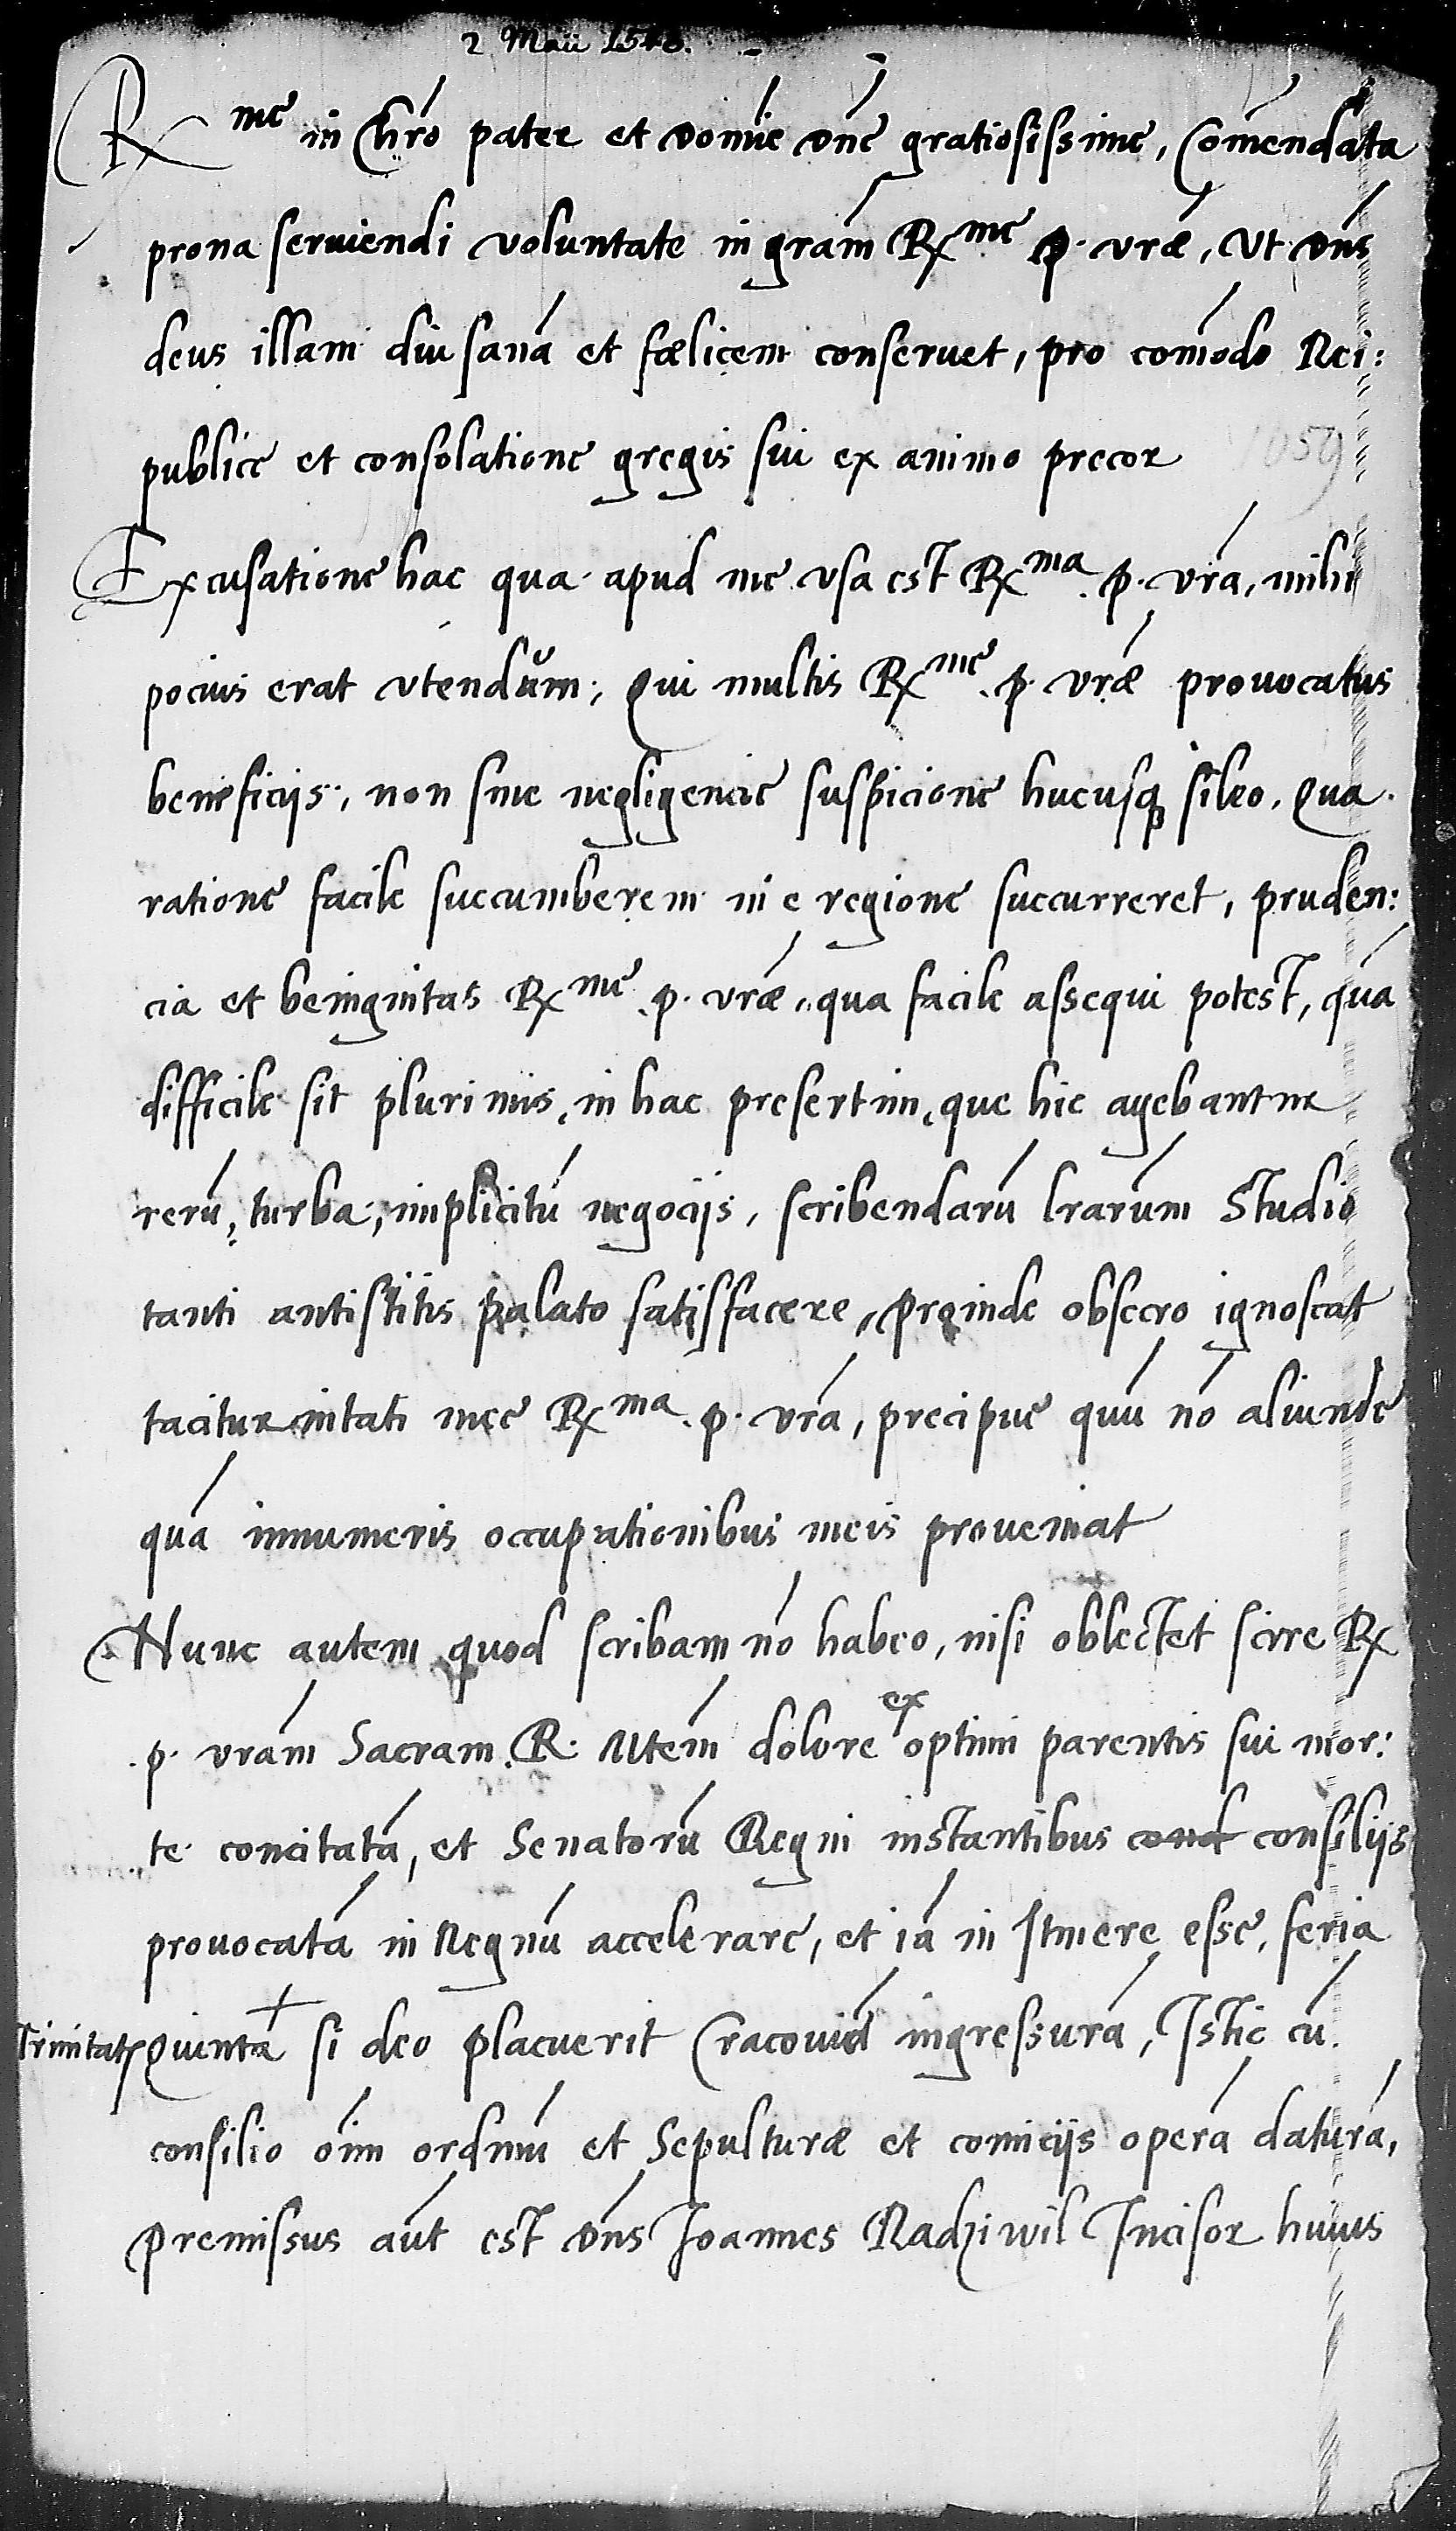 2 Maii 1548.
Rx^me in Chro pater et domie dne gratiosissime, Comendata
prona seruiendi voluntate in gram Rx^me p. vræ, Vt dns
deus illam diu sana et fœlicem conseruet, pro comodo Rei:
publice et consolatione gregis sui ex animo precor
1059
Excusatione hac qua apud me vsa est Rx^ma p. vra, mihi
pocius erat vtendum; Qui multis Rx^me p. vræ prouocatus
beneficijs, non sine negligencie suspicione hucusq sileo. Qua
ratione facile succumberem ni e regione succurreret, pruden:
cia et beingnitas Rx^me p. vræ, qua facile assequi potest, qua
difficile sit plurimis, in hac presertim, que hic agebantur
reru, turba, implicitu negocijs, scribendaru lrarum Studio
tanti antistitis palato satisfacere, proinde obsecro ignoscat
taciturnitati mee Rx^ma p. vra, precipue quu no aliunde
qua innumeris occupationibus meis proueniat
Nunc autem quod scribam no habeo, nisi oblectet scire Rx
p. vram Sacram R. Mtem dolore ex optimi parentis sui mor:
te concitata, et Senatoru Regni instantibus consilijs
prouocata in Regnu accelerare, et ia in Itinere esse, feria
Trinitatis Quinta + si deo placuerit Cracouia ingressura, Istic cu
consilio oim ordinu et Sepulturæ et comicijs opera datura,
premissus aut est dns Joannes Radziwil Incisor huius